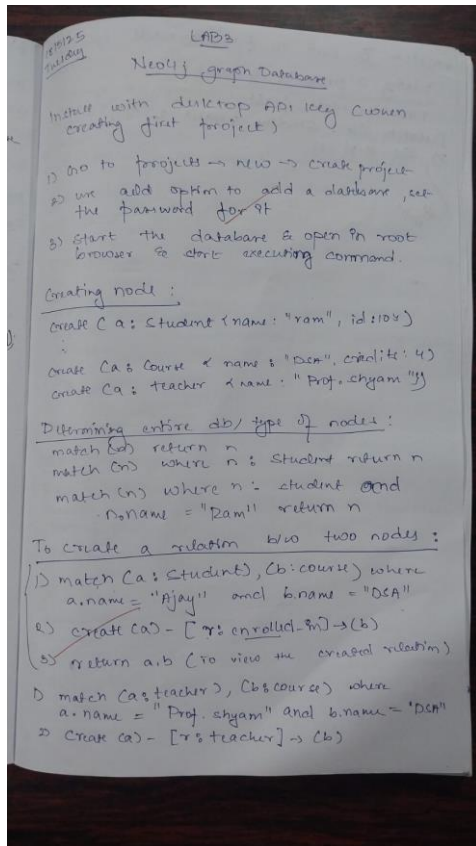 LAB3
Tuesday
Neo4j graph Database
Install with desktop API key (when
creating first project)
1) Go to projects → new → create project
2) use add option to add a database, set
the password for it
3) start the database & open in root
browser & start executing command.
Creating node :
create (a: student {name: "ram", id:104)
:
create (a: course { name: "DSA", credits: 4)
create (a: teacher {name: "Prof. shyam"})
Determining entire db/ type of nodes :
match (n) return n
match (n) where n: student return n
match (n) where n: student and
n.name = "Ram" return n
To create a relation b/w two nodes :
1) match (a: student), (b: course) where
a.name = "Ajay" and b.name = "DSA"
2) create (a) - [r: enrolled-in] → (b)
3) return a.b (To view the created relation)
1) match (a: teacher), (b: course) where
a.name = "Prof. shyam" and b.name = "DSA"
2) Create (a) - [r: teacher] → (b)